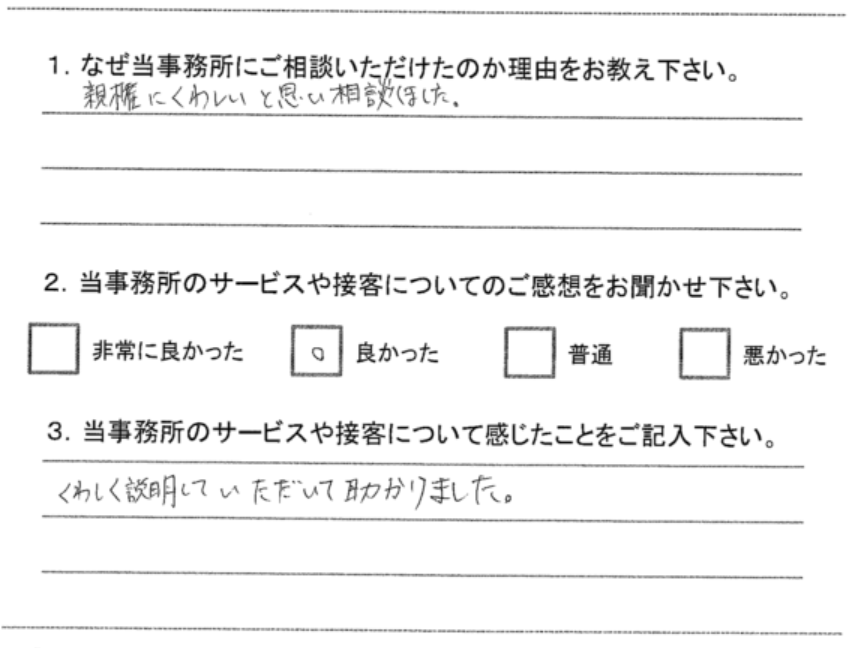 1. なぜ当事務所にご相談いただけたのか理由をお教え下さい。
親権にくわしいと思い相談しました。
2. 当事務所のサービスや接客についてのご感想をお聞かせ下さい。
非常に良かった ○ 良かった 普通 悪かった
3. 当事務所のサービスや接客について感じたことをご記入下さい。
くわしく説明していただいて助かりました。